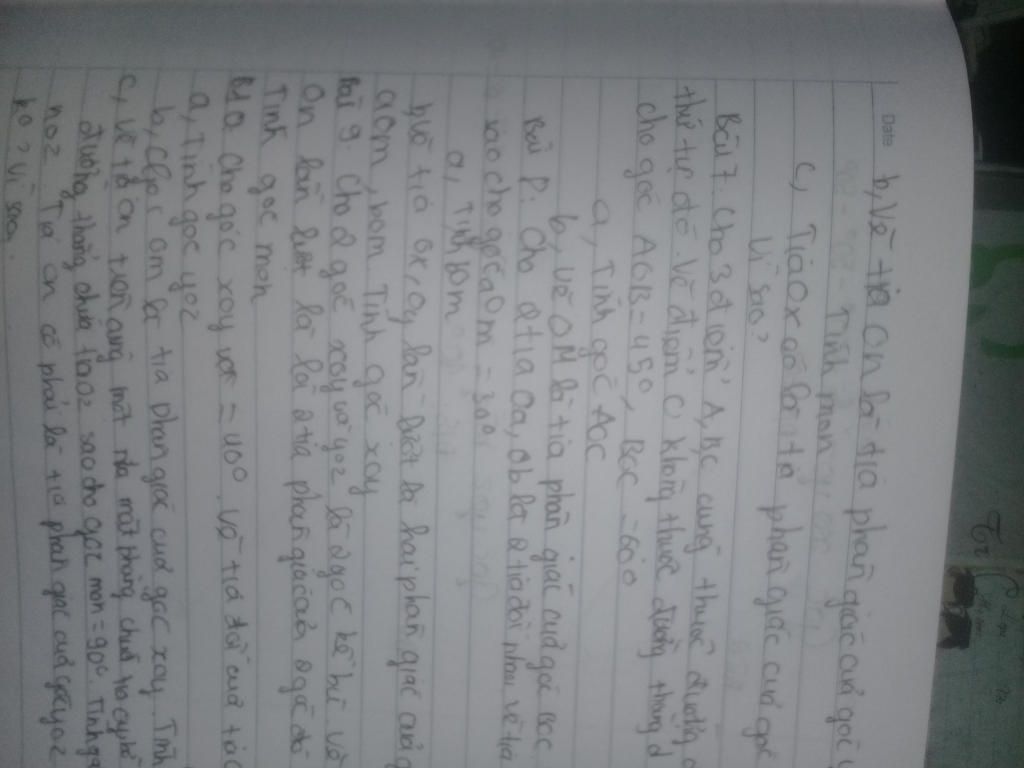 Date
b, Vẽ tia On là tia phân giác của góc
Tính mon
c, Tia Ox có là tia phân giác của góc
Vì sao?
Bài 7. Cho 3 điểm A, B, C cùng thuộc đường
thứ tự đó. Vẽ điểm O không thuộc đường thẳng d
cho góc AOB = 45°, BOC = 60°
a, Tính góc AOC
b, Vẽ OM là tia phân giác của góc BOC
Bài 8: Cho 2 tia Oa, Ob là 2 tia đối nhau vẽ tia
sao cho góc aOm = 30°
a, Tính bOm
b, vẽ tia Ox, Oy lần lượt là hai phân giác của g
aOm, bOm. Tính góc xOy
Bài 9. Cho 2 góc xoy và yoz là 2 góc kề bù. Vẽ
On lần lượt là là 2 tia phân giác của 2 góc đó
Tính góc mon
Cho góc xoy = 40°. Vẽ tia đối của tia
a, Tính góc yoz
b, Gọi Om là tia phân giác của góc xoy. Tính
c, Vẽ tia On trên cùng một nửa mặt phẳng chứa tia oy bờ
đường thẳng chứa tia oz sao cho góc mon = 90°. Tính gó
noz. Tia On có phải là tia phân giác của góc yoz
ko? Vì sao.